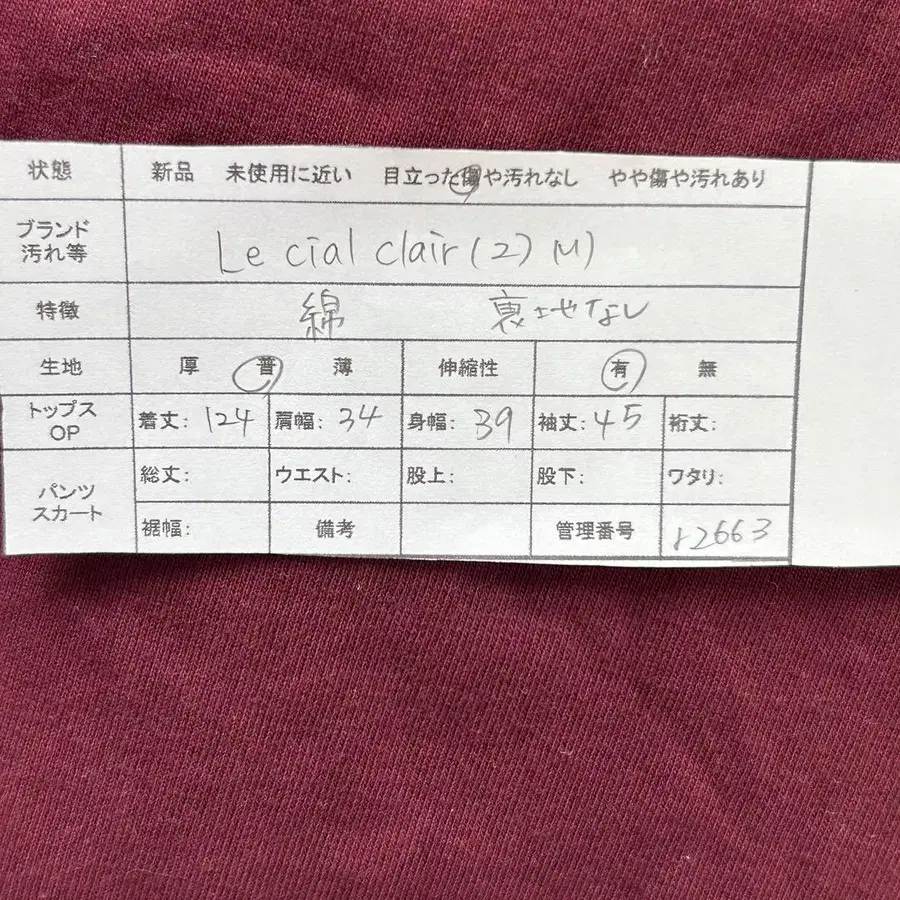 状態 新品 未使用に近い 目立った傷や汚れなし やや傷や汚れあり
ブランド
汚れ等
Le cial clair (2) M)
特徴 綿 裏地なし
生地 厚 普 薄 伸縮性 有 無
トップス
OP
着丈: 124 肩幅: 34 身幅: 39 袖丈: 45 裄丈:
パンツ
スカート
総丈: ウエスト: 股上: 股下: ワタリ:
裾幅: 備考 管理番号 r2663